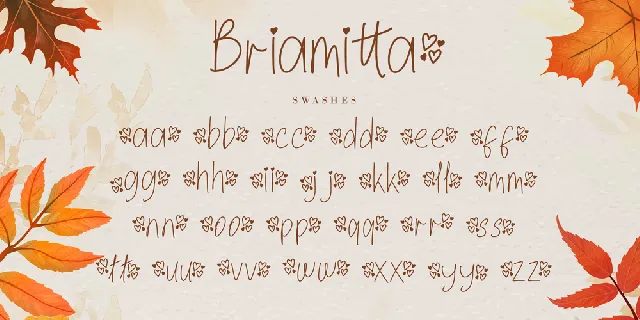 Briamitta
SWASHES
aa bb cc dd ee ff
gg hh ii jj kk ll mm
nn oo pp qq rr ss
tt uu vv ww xx yy zz